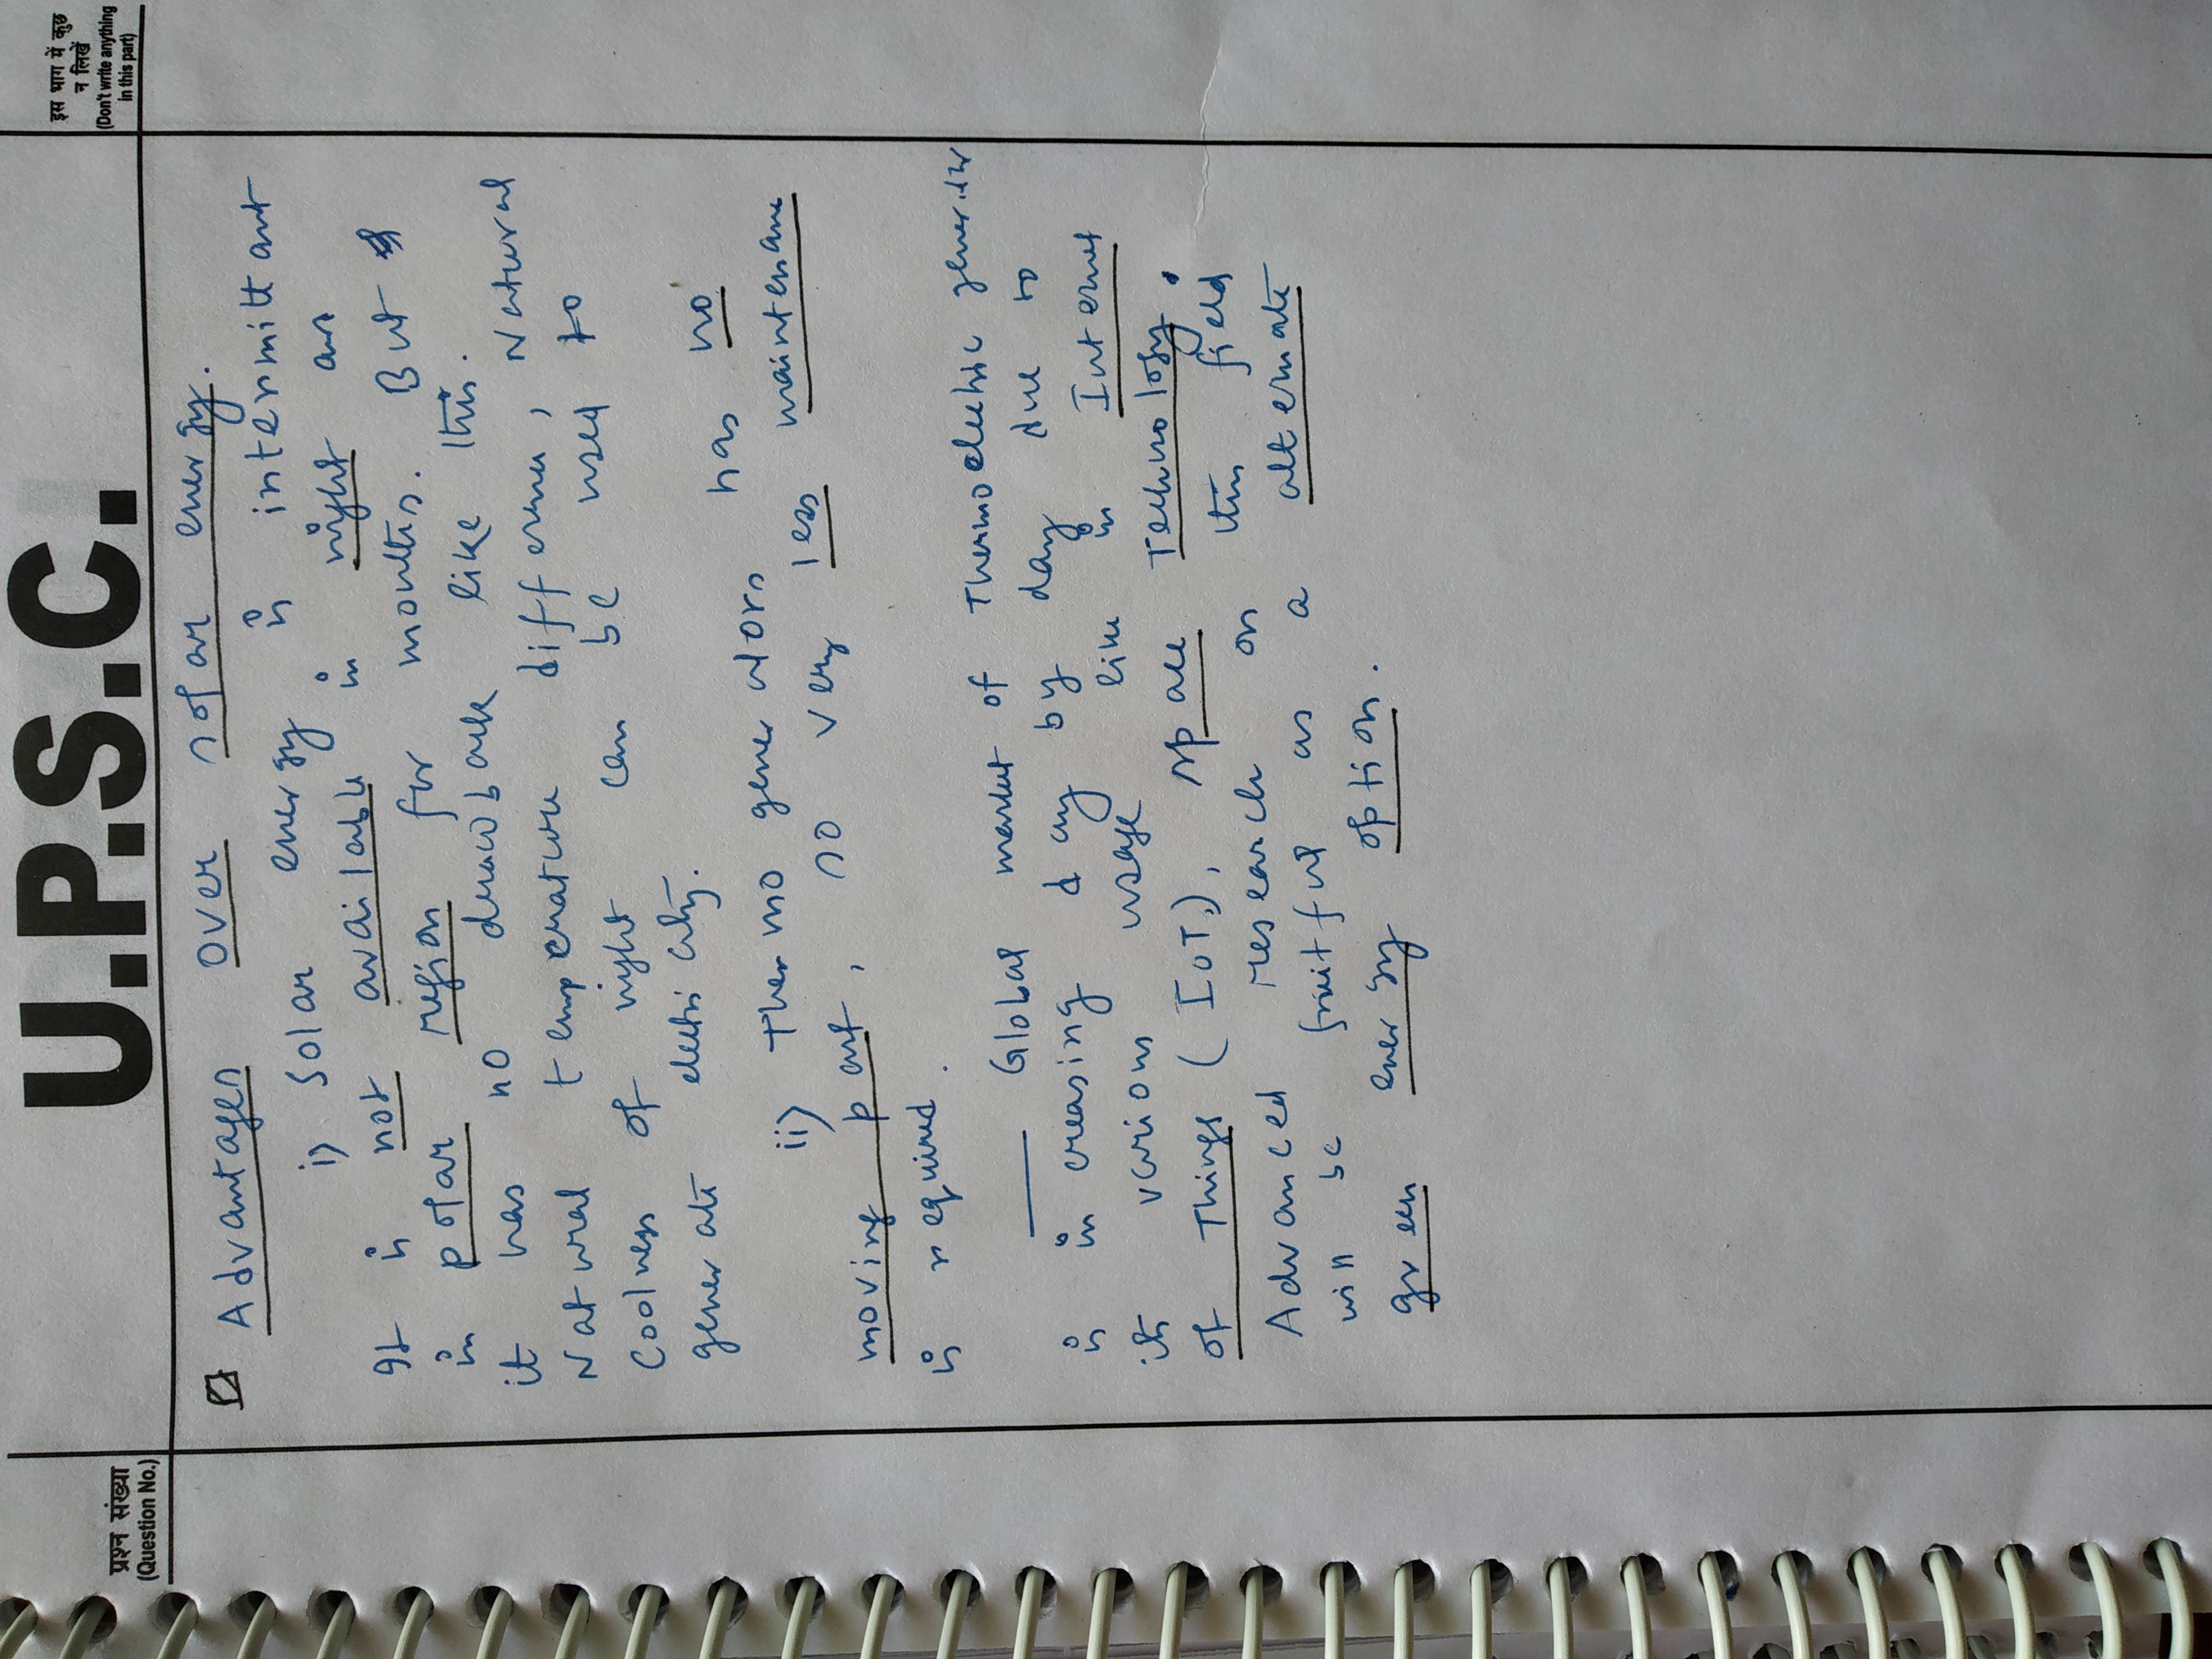 U.P.S.C.
प्रश्न संख्या
(Question No.)
इस भाग में कुछ
न लिखें
(Don't write anything
in this part)
Advantages over solar energy.
i) Solar energy is intermittant
It is not available in night an
in polar region for months. But
it has no drawback like this.
Natural temperature difference, Natural
Coolness of night can be used to
generate electricity.
ii) Thermo generators has no
moving part, so very less maintenance
is required.
Global market of Thermoelectric generator
is increasing day by day due to
its various usage like in Internet
of Things (IOT), space Technology.
Advanced research on this field
will be fruitful as a alternate
green energy option.